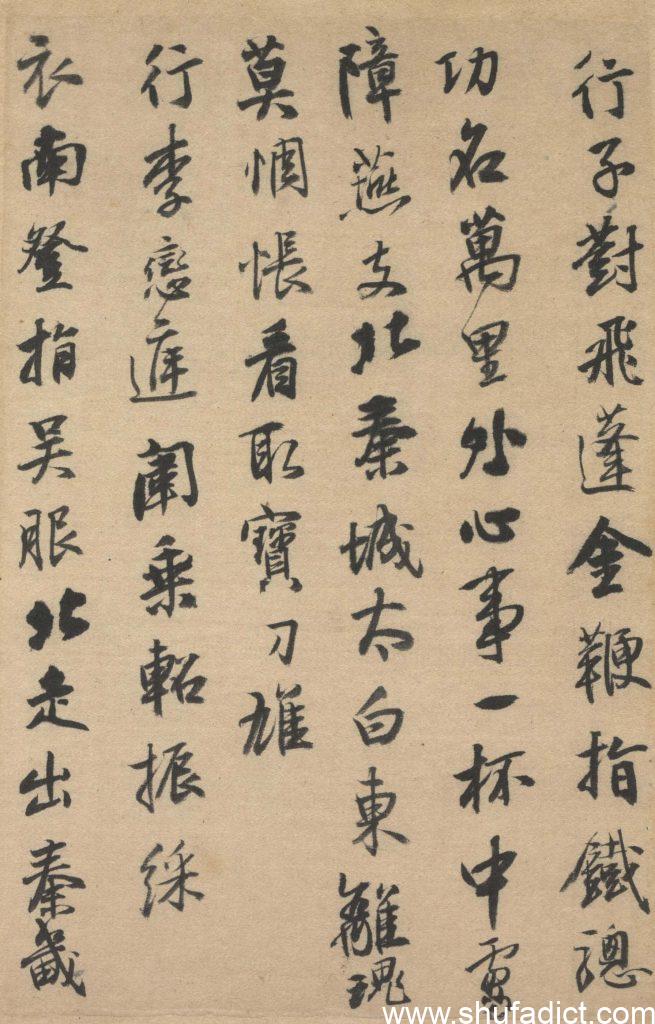 行子對飛蓬金鞭指鐵驄
功名萬里外心事一杯中虜
障燕支北秦城太白東離魂
莫惆悵看取寶刀雄
行李戀庭闈乘軺振綵
衣南登指吳服北走出秦畿
www.shufadict.com